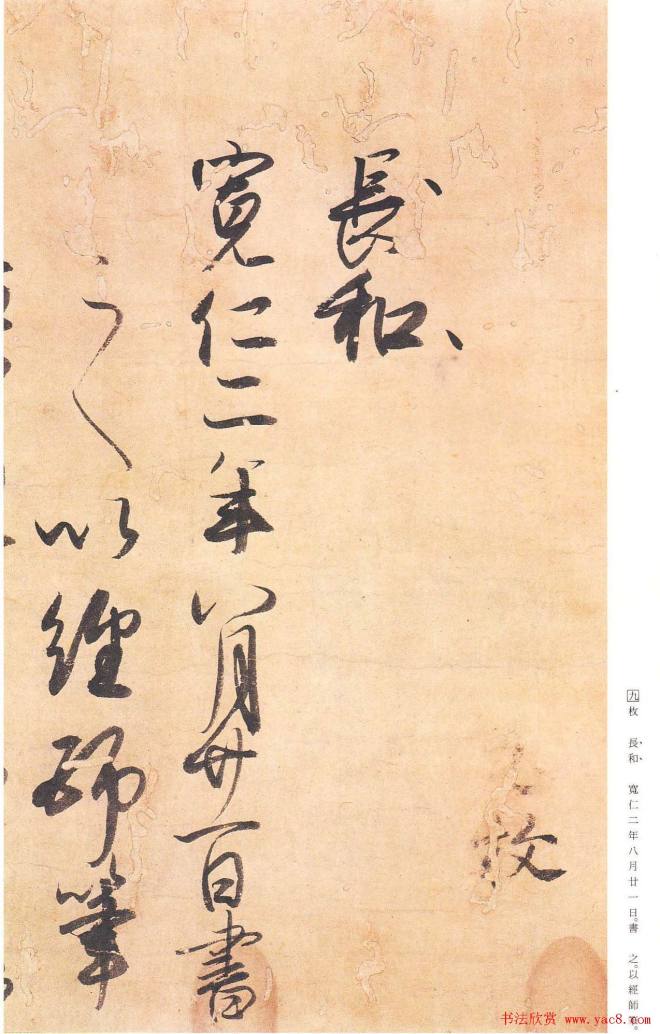 枚
長和、
寛仁二年八月廿一日書
之以經師筆
九枚 長和 寛仁二年八月廿一日。書 之。以經師筆。
书法欣赏 www.yac8.com